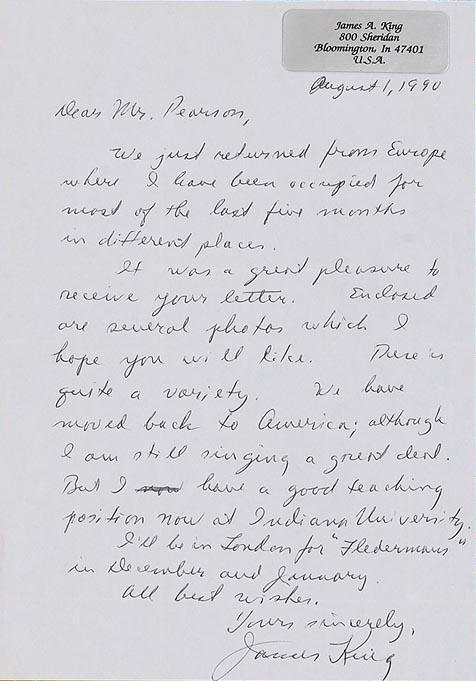 James A. King
800 Sheridan
Bloomington, In 47401
U.S.A.
August 1, 1990
Dear Mr. Pearson,
We just returned from Europe
where I have been occupied for
most of the last five months
in different places.
It was a great pleasure to
receive your letter. Enclosed
are several photos which I
hope you will like. There is
quite a variety. We have
moved back to America; although
I am still singing a great deal.
But I now have a good teaching
position now at Indiana University.
I'll be in London for "Fledermaus"
in December and January.
All best wishes.
Yours sincerely,
James King